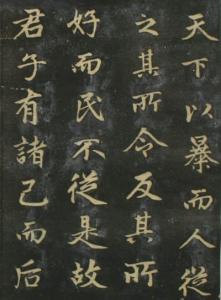 天下以暴而人從
之其所令反其所
好而民不從是故
君子有諸己而后